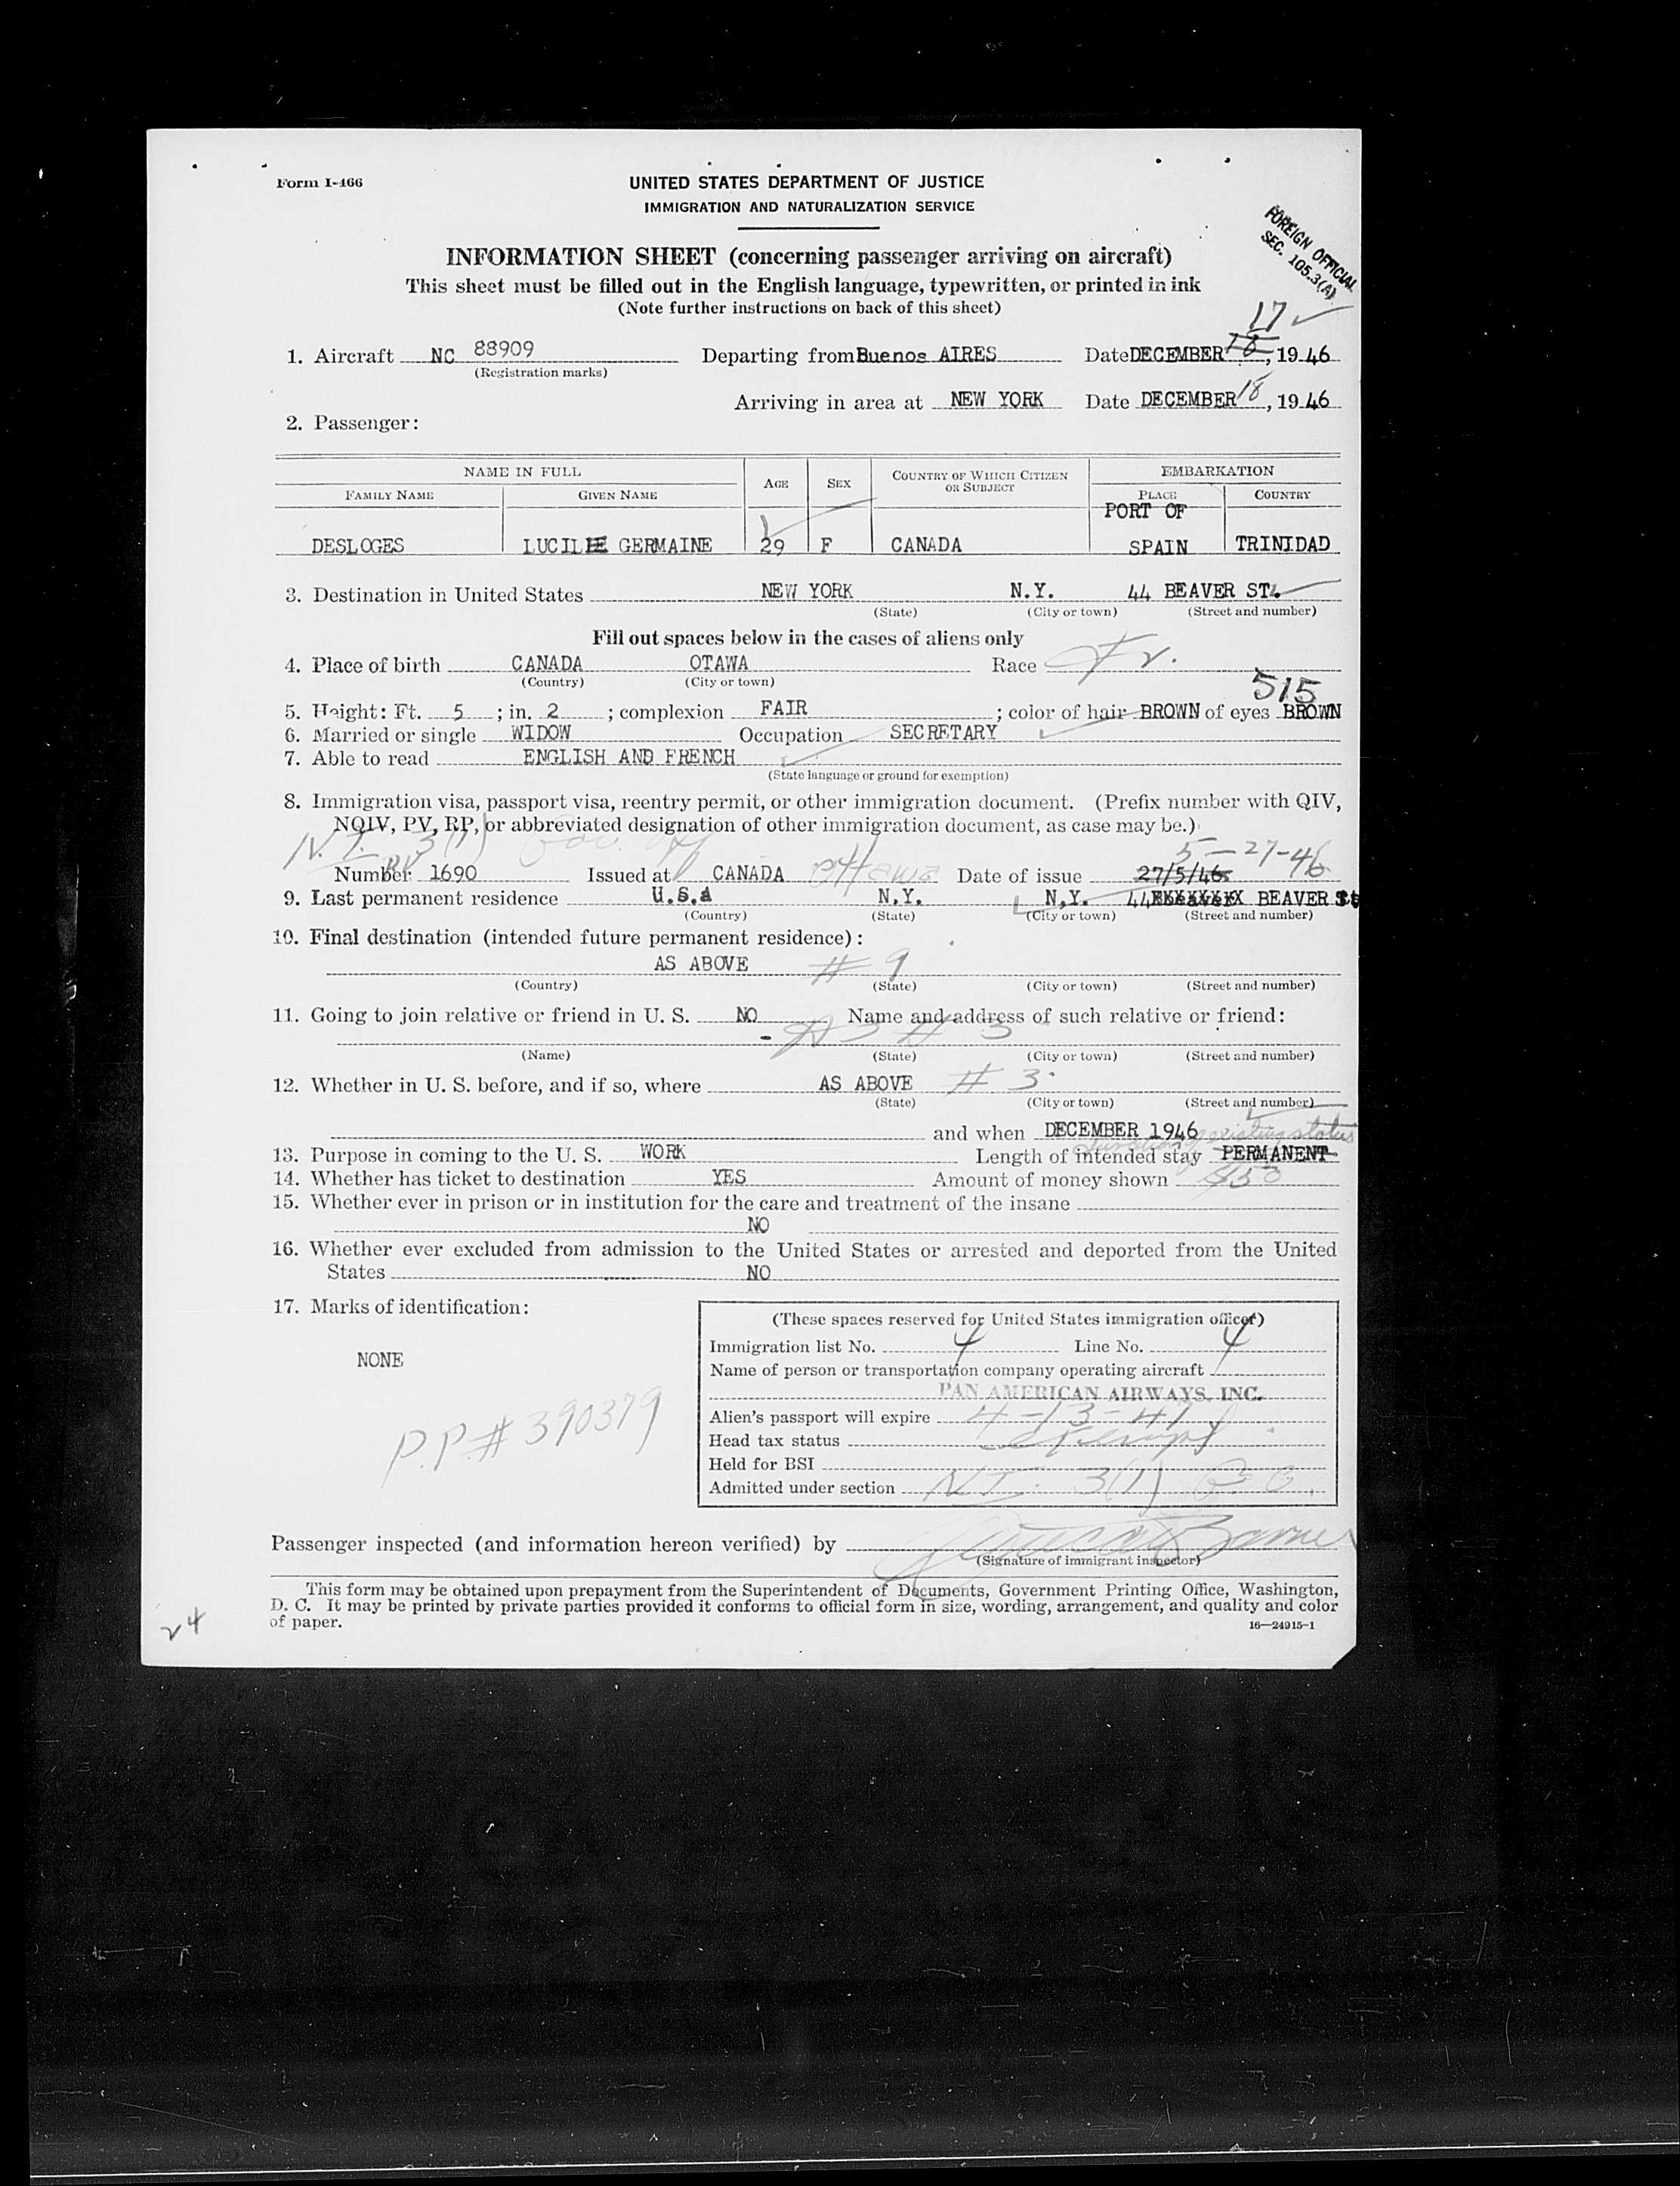 Form I-466
UNITED STATES DEPARTMENT OF JUSTICE
IMMIGRATION AND NATURALIZATION SERVICE
FOREIGN OFFICIAL
SEC. 105.3(A)
INFORMATION SHEET (concerning passenger arriving on aircraft)
This sheet must be filled out in the English language, typewritten, or printed in ink
(Note further instructions on back of this sheet)
17
1. Aircraft NC 88909 Departing from Buenos AIRES Date DECEMBER 18, 1946
(Registration marks)
Arriving in area at NEW YORK Date DECEMBER 18, 1946
2. Passenger:
NAME IN FULL AGE SEX COUNTRY OF WHICH CITIZEN OR SUBJECT EMBARKATION
FAMILY NAME GIVEN NAME PLACE COUNTRY
PORT OF
DESLOGES LUCILLE GERMAINE 29 F CANADA SPAIN TRINIDAD
3. Destination in United States NEW YORK N.Y. 44 BEAVER ST.
(State) (City or town) (Street and number)
Fill out spaces below in the cases of aliens only
4. Place of birth CANADA OTAWA Race Fr.
(Country) (City or town)
515
5. Height: Ft. 5 ; in. 2 ; complexion FAIR ; color of hair BROWN of eyes BROWN
6. Married or single WIDOW Occupation SECRETARY
7. Able to read ENGLISH AND FRENCH
(State language or ground for exemption)
8. Immigration visa, passport visa, reentry permit, or other immigration document. (Prefix number with QIV,
NQIV, PV, RP, or abbreviated designation of other immigration document, as case may be.)
N.I. 3(1) 5-27-46
PV
Number 1690 Issued at CANADA Ottawa Date of issue 27/5/46
9. Last permanent residence U.S.A N.Y. N.Y. 44 BEAVER St
(Country) (State) (City or town) (Street and number)
10. Final destination (intended future permanent residence):
AS ABOVE # 9
(Country) (State) (City or town) (Street and number)
11. Going to join relative or friend in U. S. NO Name and address of such relative or friend:
- As # 3
(Name) (State) (City or town) (Street and number)
12. Whether in U. S. before, and if so, where AS ABOVE # 3
(State) (City or town) (Street and number)
and when DECEMBER 1946
Duration of existing status
13. Purpose in coming to the U. S. WORK Length of intended stay PERMANENT
14. Whether has ticket to destination YES Amount of money shown $50
15. Whether ever in prison or in institution for the care and treatment of the insane
NO
16. Whether ever excluded from admission to the United States or arrested and deported from the United
States NO
17. Marks of identification:
NONE
P.P.# 390379
(These spaces reserved for United States immigration officer)
Immigration list No. 4 Line No. 4
Name of person or transportation company operating aircraft
PAN AMERICAN AIRWAYS, INC.
Alien's passport will expire 4-13-47
Head tax status exempt
Held for BSI
Admitted under section N.I. 3(1)
Passenger inspected (and information hereon verified) by
(Signature of immigrant inspector)
This form may be obtained upon prepayment from the Superintendent of Documents, Government Printing Office, Washington,
D. C. It may be printed by private parties provided it conforms to official form in size, wording, arrangement, and quality and color
of paper.
16—24915-1
24